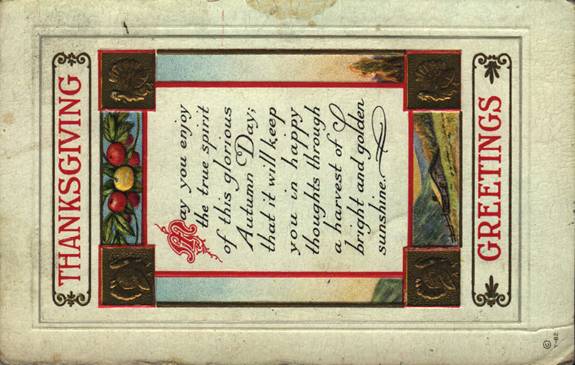 THANKSGIVING
May you enjoy
the true spirit
of this glorious
Autumn Day;
that it will keep
you in happy
thoughts through
a harvest of
bright and golden
sunshine.
GREETINGS
© Y-82